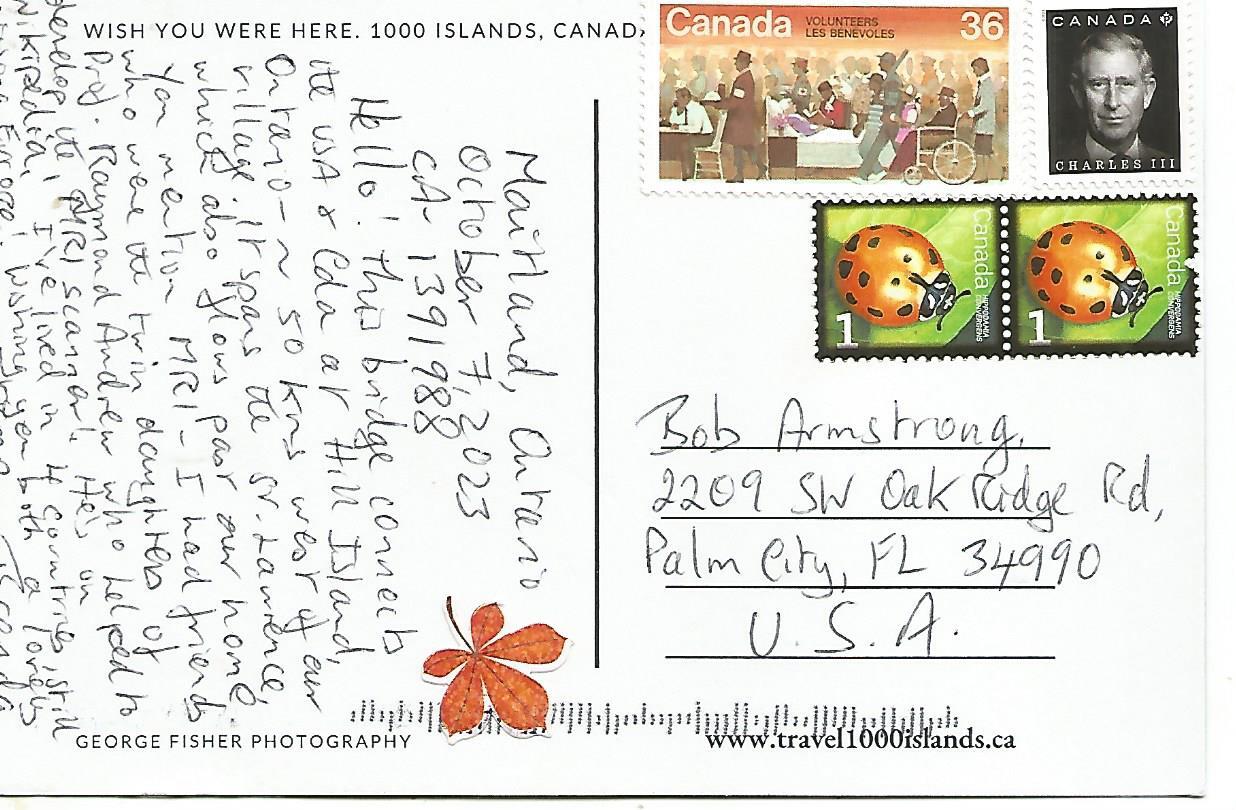 WISH YOU WERE HERE. 1000 ISLANDS, CANADA
Canada
VOLUNTEERS
LES BÉNÉVOLES
36
CANADA P
CHARLES III
Canada
HIPPODAMIA
CONVERGENS
1
Canada
HIPPODAMIA
CONVERGENS
1
Maitland, Ontario
October 7, 2023
CA-1391988
Hello! This bridge connects
the USA & Cda at Hill Island,
Ontario - ~ 50 kms west of our
village. It spans the St. Lawrence,
which also flows past our home.
You mention MRI - I had friends
who were the twin daughters of
Prof. Raymond Andrew who helped to
develop the MRI scanner! He's on
Wikipedia. I've lived in 4 countries, still
Europe! Wishing you both a lovely
Bob Armstrong,
2209 SW Oak Ridge Rd,
Palm City, FL 34990
U.S.A.
GEORGE FISHER PHOTOGRAPHY
www.travel1000islands.ca